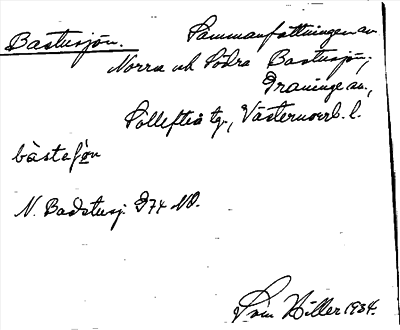 Bastusjön. Sammanfattningen av
Norra och Södra Bastusjön;
Graninge sn.,
Sollefteå tg., Västernorrl. l.
bàstefǫn
N. Badstusj. G74 NO.
Hiller 1934.